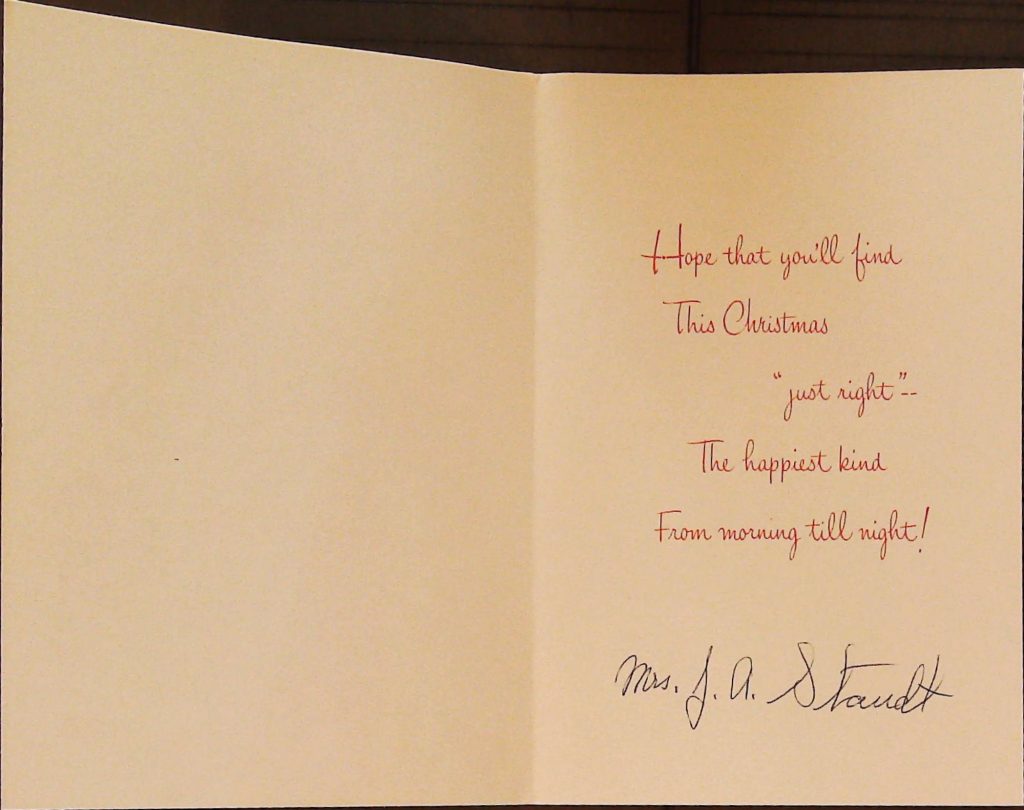 Hope that you'll find
This Christmas
"just right"--
The happiest kind
From morning till night!
Mrs. J. A. Staudt